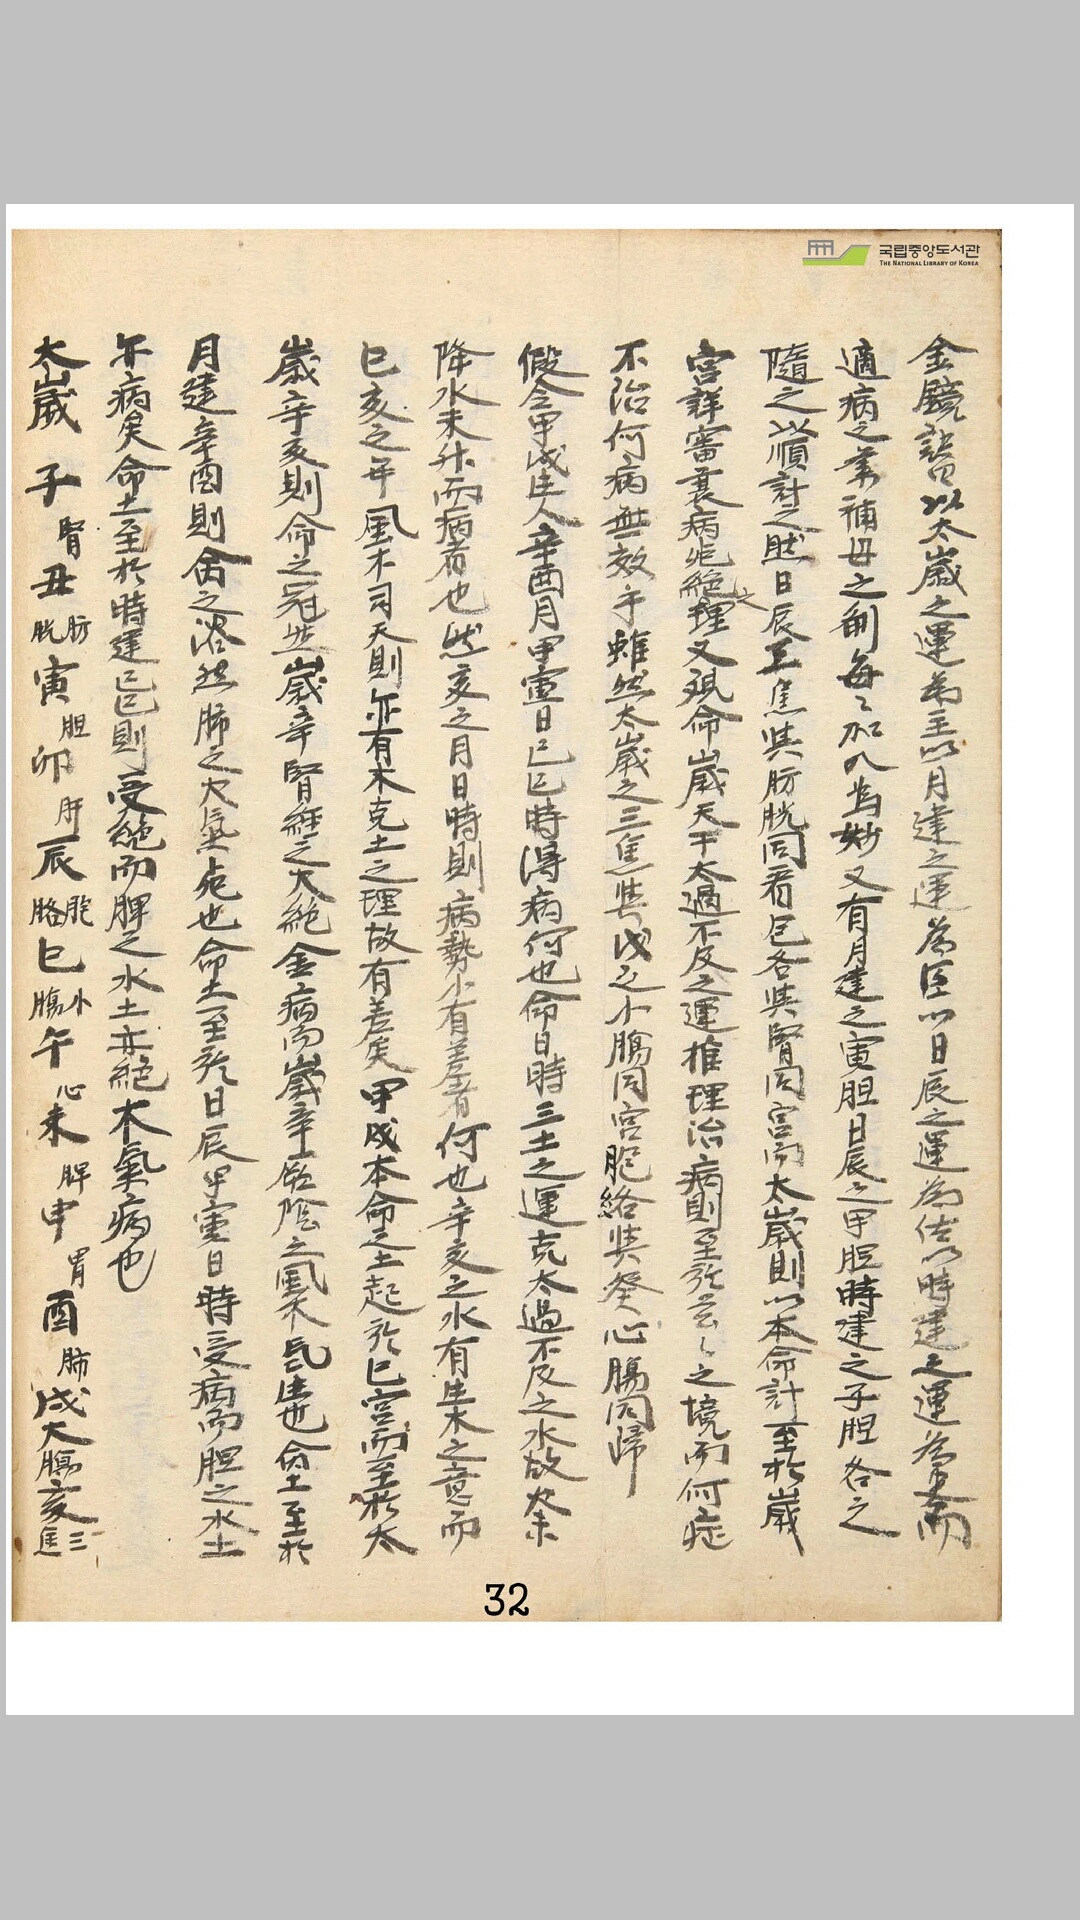 국립중앙도서관
THE NATIONAL LIBRARY OF KOREA
金鏡訣曰以太歲之運爲主以月建之運爲臣以日辰之運爲佐以時建之運爲使而
適病之藥補母之劑每〻加入爲妙又有月建之寅胆日辰之甲胆時建之子胆各之
隨之以順計之然日辰三焦與肪胱同看包各與腎同宮而太歲則以本命計至於歲
宮詳審衰病死絶之理又現命歲天干太過不及之運推理治病則至於玄〻之境而何症
不治何病無效乎雖然太歲之三焦與戊之小膓同宮胞絡與癸心膓同歸
假令甲戌生人辛酉月甲寅日己巳時得病何也命日時三土之運克太過不及之水故
降水未升而病者也然亥之月日時則病勢小有差者何也辛亥之水有生木之意而
巳亥之年風木司天則亦有木克土之理故有差矣甲戌本命之土起於巳宮而至於太
歲辛亥則命之冠也歲辛腎經之大絶金病而歲辛厥陰之風木長生也命土至於
月建辛酉則命之浴然肺之大氣死也命土至於日辰甲寅日時受病而胆之水土
亦病矣命土至於時建己巳則受絶而脾之水土亦絶木氣病也
太歲 子腎丑肪胱寅胆卯肝辰胞胳巳小膓午心未脾申胃酉肺戌大膓亥三焦
32